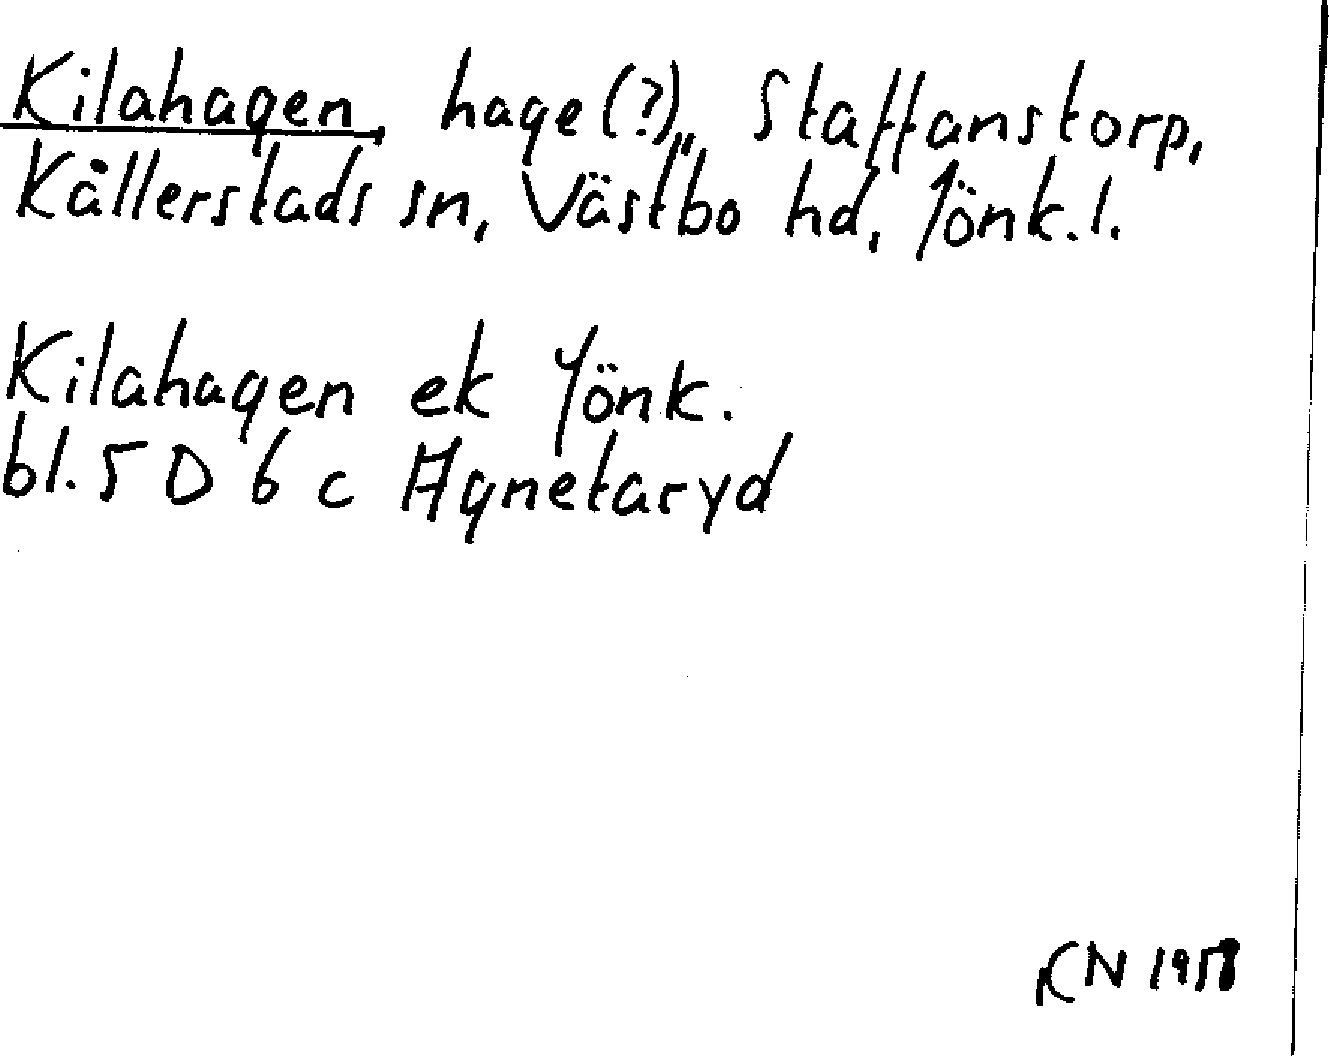 Kilahagen, hage (?), Staffanstorp,
Kållerstads sn, Västbo hd, Jönk. l.
Kilahagen ek Jönk.
bl. 5 D 6 c Agnetaryd
CN 1958